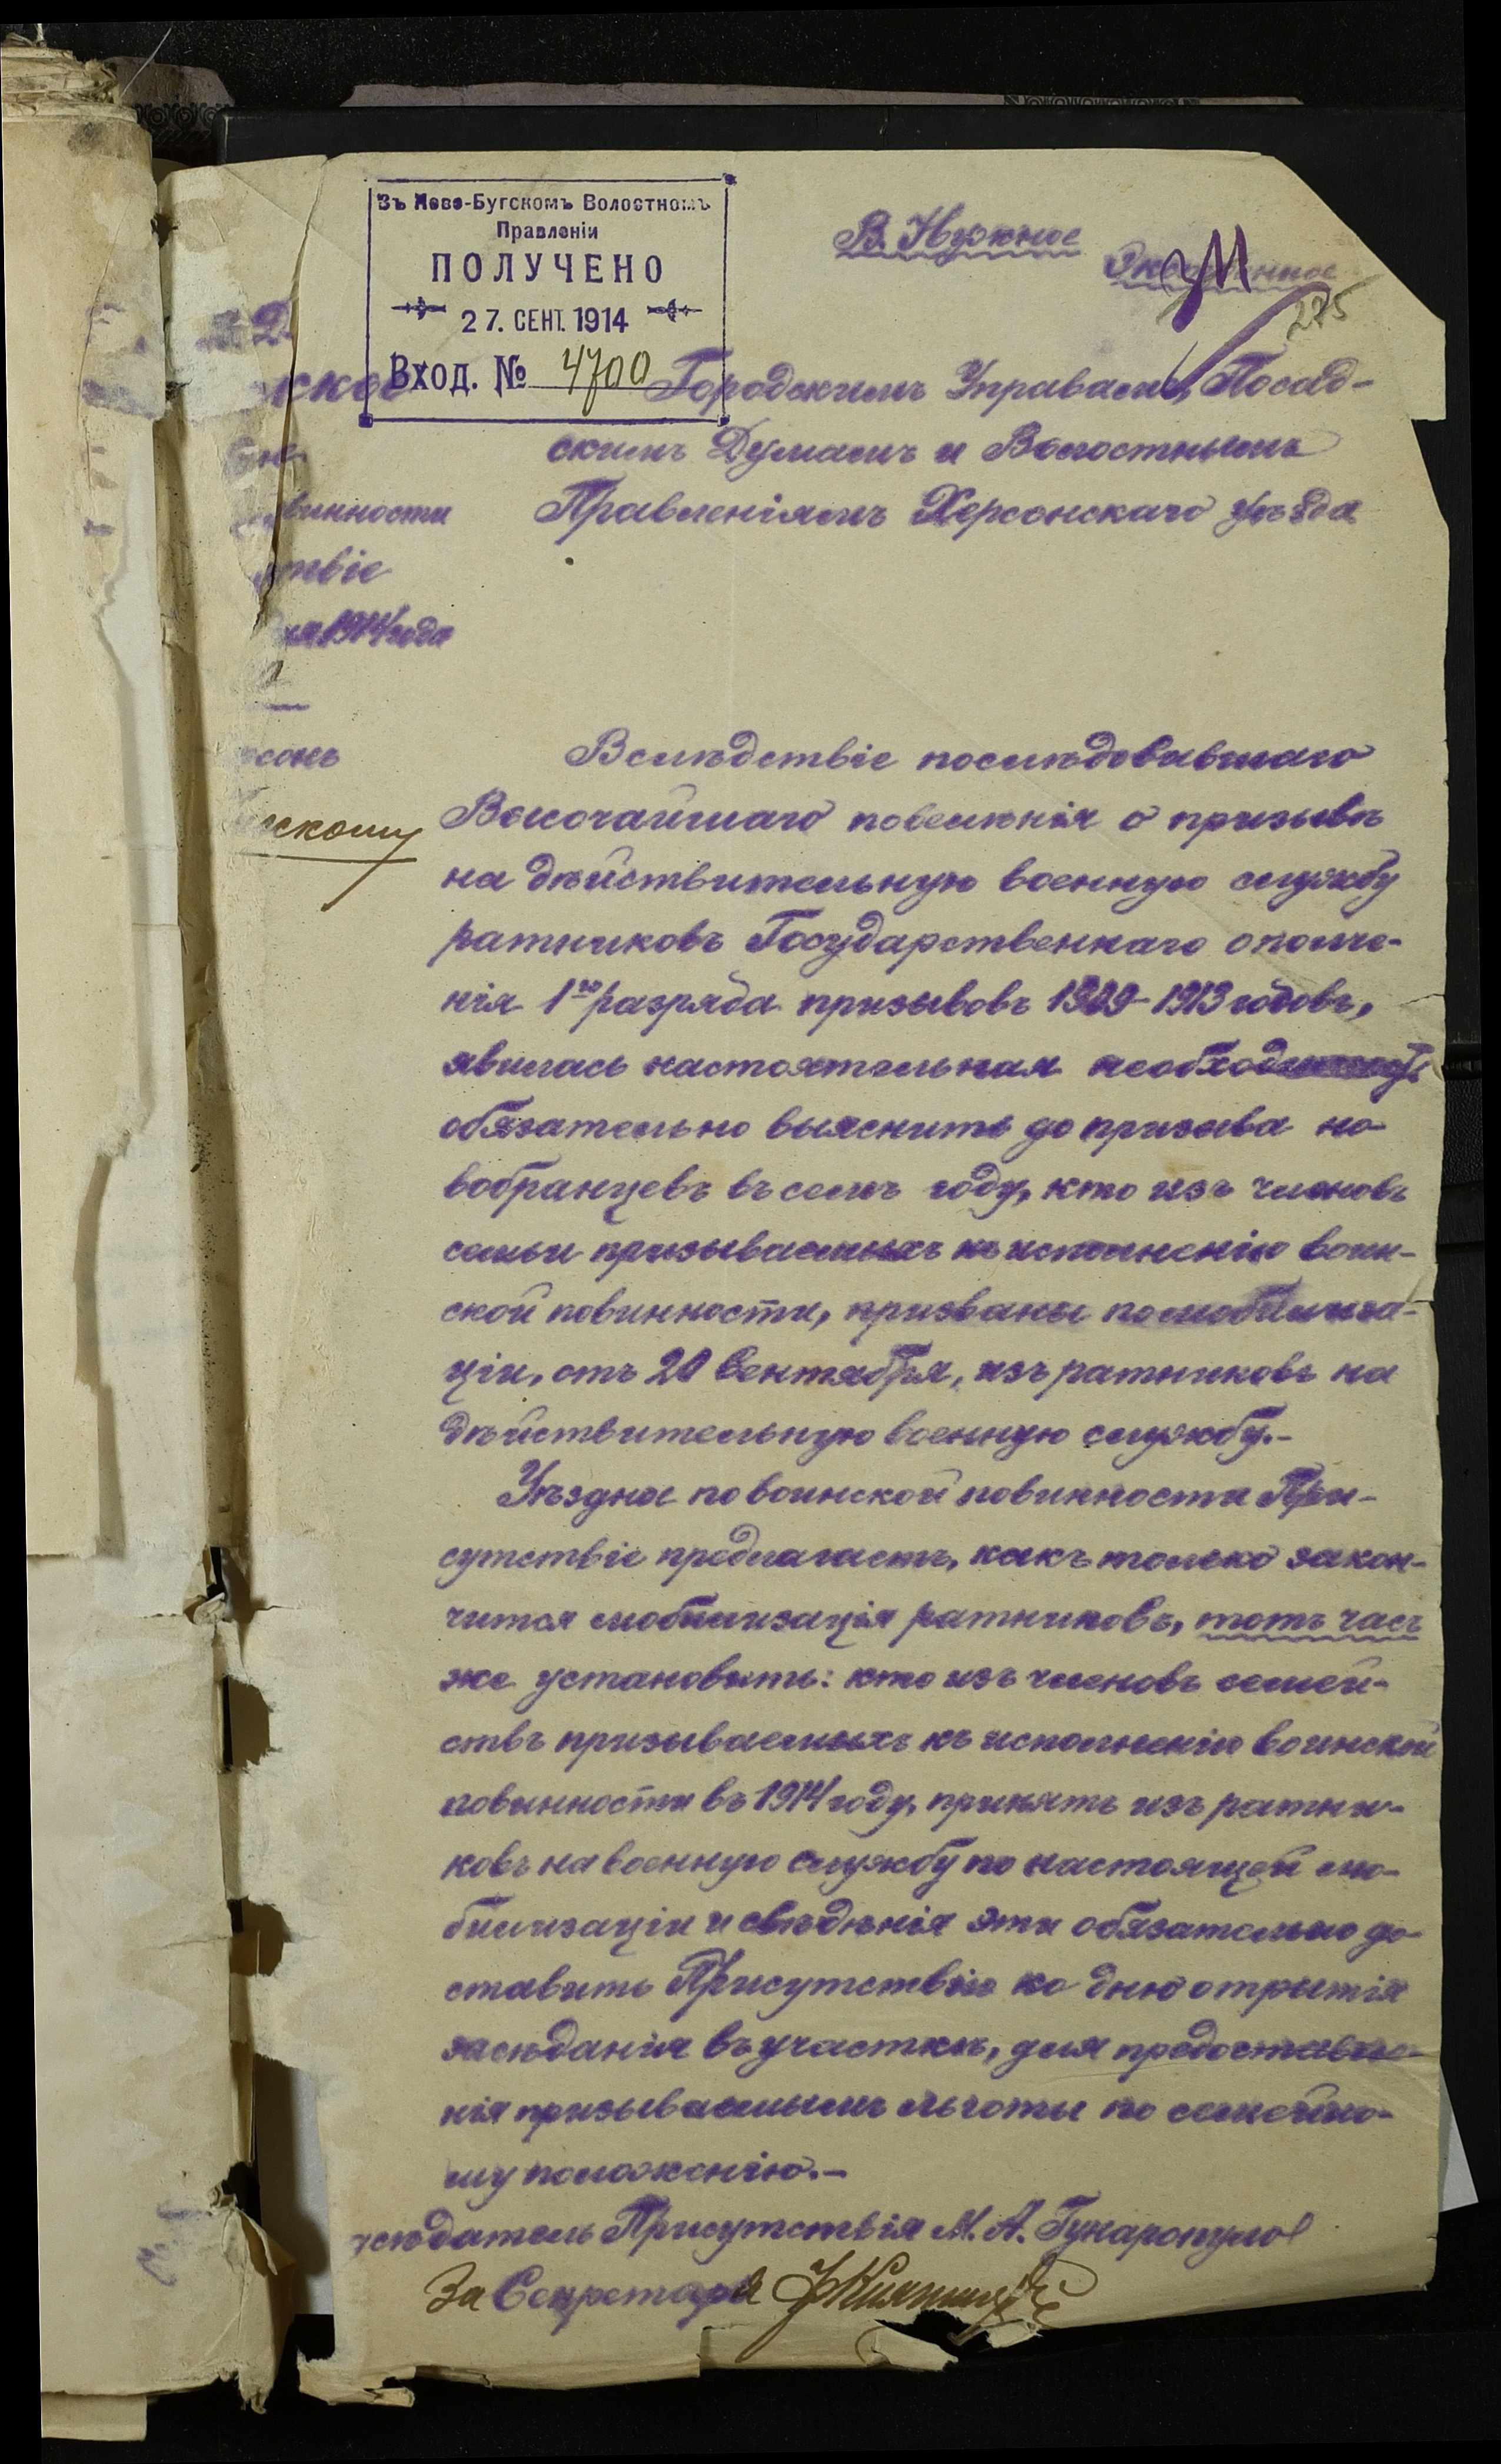 Въ Ново-Бугскомъ Волостномъ
Правленіи
ПОЛУЧЕНО
27. СЕНТ. 1914
Вход. № 4700
В. Нужное
275
Городскимъ Управамъ, Посад-
скимъ Думамъ и Волостнымъ
Правленіямъ Херсонскаго уѣзда
ское
винности
ствіе
1914 года
сонъ
скому
Вслѣдствіе послѣдовавшаго
Высочайшаго повелѣнія о призывѣ
на дѣйствительную военную службу
ратниковъ Государственнаго ополче-
нія 1го разряда призывовъ 1909-1913 годовъ,
явилась настоятельная необходимость
обязательно выяснить до призыва но-
вобранцевъ въ семъ году, кто изъ членовъ
семьи призываемыхъ къ исполненію воин-
ской повинности, призваны по мобилиза-
ціи, отъ 20 Сентября, изъ ратниковъ на
дѣйствительную военную службу.-
Уѣздное по воинской повинности При-
сутствіе предлагаетъ, какъ только закон-
чится мобилизація ратниковъ, тотъ часъ
же установить: кто изъ членовъ семей-
ствъ призываемыхъ къ исполненію воинской
повинности въ 1914 году, принятъ изъ ратни-
ковъ на военную службу по настоящей мо-
билизаціи и свѣдѣнія эти обязательно до-
ставить Присутствію ко дню открытія
засѣданія въ участкѣ, для предоставле-
нія призываемымъ льготы по семейно-
му положенію.-
сѣдатель Присутствія М. А. Гунаропуло
За Секретаря